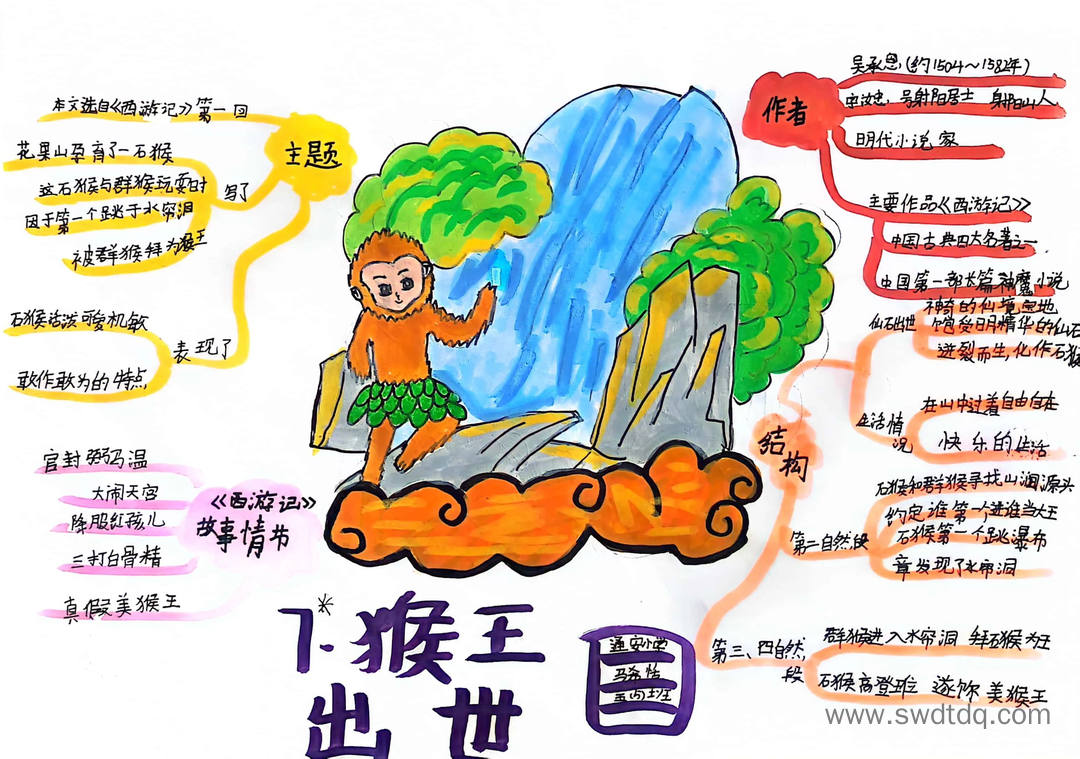 7.*猴王
出世
主题
本文选自《西游记》第一回
写了
花果山孕育了一石猴
这石猴与群猴玩耍时
因于第一个跳于水帘洞
被群猴拜为猴王
表现了
石猴活泼可爱机敏
敢作敢为的特点
《西游记》
故事情节
官封弼马温
大闹天宫
降服红孩儿
三打白骨精
真假美猴王
作者
吴承恩(约1504～1582年)
号射阳居士 射阳山人
明代小说家
主要作品《西游记》
中国古典四大名著之一
中国第一部长篇神魔小说
结构
仙石出世
神奇的仙境
精华的仙石
迸裂而生,化作石猴
生活情
况
在山中过着自由自在
快乐的生活
第二自然段
石猴和群猴寻找山涧源头
约定谁第一个进谁当大王
石猴第一个跳瀑布
发现了水帘洞
第三、四自然
段
群猴进入水帘洞 拜石猴为王
石猴高登王位 遂称美猴王
通安小学
www.swdtdq.com